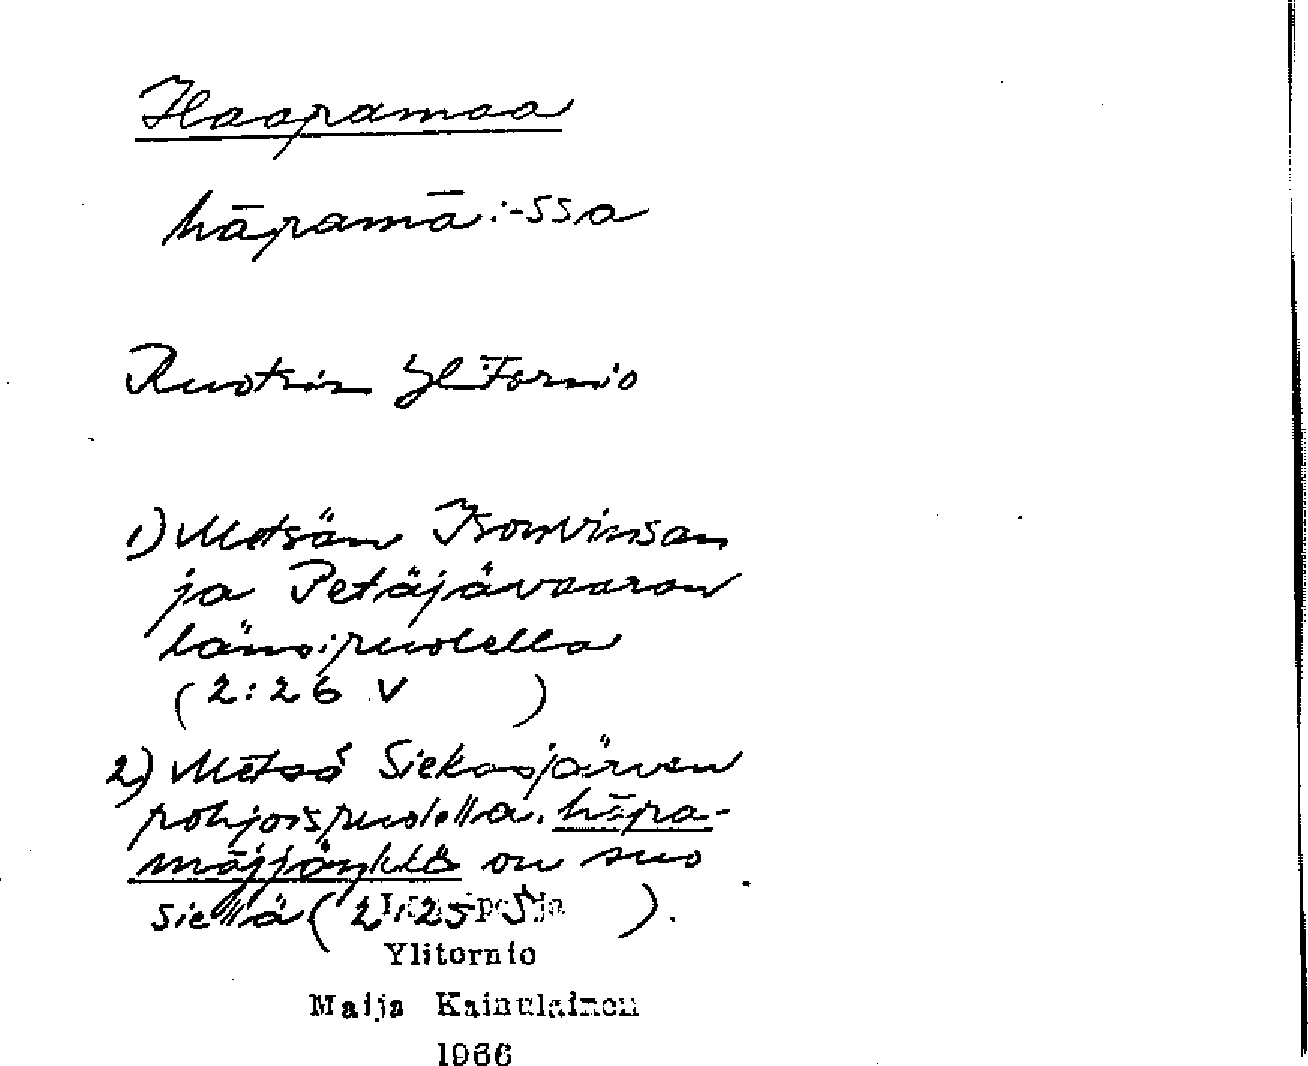 Haapamaa
hāpamā̄:-ssa
Ruotsin Ylitornio
1) Metsän Isonvinsan
ja Petäjävaaran
länsipuolella
(2:26 V )
2) Metsä Siekasjärven
pohjoispuolella. hāpa-
māj jäŋkkä on suo
siellä (2:25 S ).
Ylitornio
Maija Kainulainen
1966